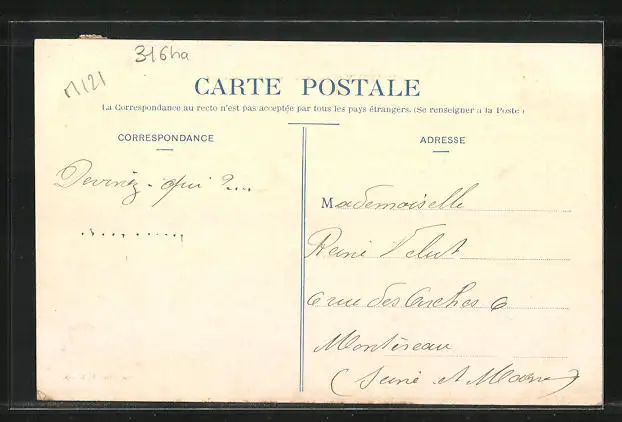 316ha
M121
CARTE POSTALE
La Correspondance au recto n'est pas acceptée par tous les pays étrangers. (Se renseigner à la Poste)
CORRESPONDANCE
Devinez-qui ?...
ADRESSE
Mademoiselle
René Velut
6 rue des Arches 6
Montereau
(Seine et Marne)